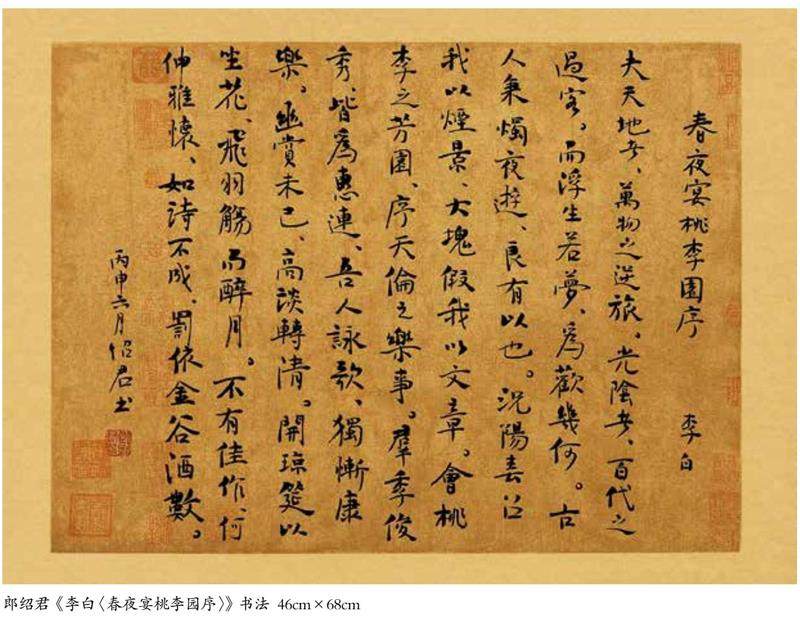 春夜宴桃李園序 李白
夫天地者、萬物之逆旅。光陰者、百代之
過客。而浮生若夢、為歡幾何。古
人秉燭夜遊、良有以也。況陽春召
我以煙景、大塊假我以文章。會桃
李之芳園、序天倫之樂事。羣季俊
秀、皆為惠連、吾人詠歌、獨慚康
樂。幽賞未已、高談轉清。開瓊筵以
坐花、飛羽觴而醉月。不有佳作、何
伸雅懷、如詩不成、罰依金谷酒數。
丙申六月紹君書
郎绍君《李白〈春夜宴桃李园序〉》书法 46cm×68cm